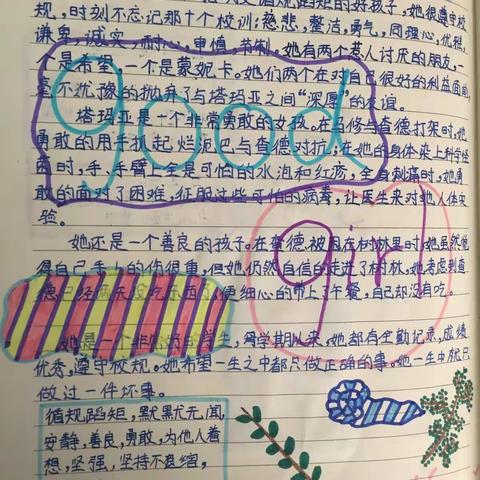 循规蹈矩的好孩子,她很遵守校
规,时刻不忘记那十个校训:慈悲,整洁,勇气,同理心,优雅,
谦卑,诚实,耐心,审慎,节制。她有两个惹人讨厌的朋友,一
个是希望,一个是蒙妮卡。她们两个在对自己很好的利益面前,
毫不犹豫的抛弃了与塔玛亚之间“深厚”的友谊。
塔玛亚是一个非常勇敢的女孩。在马修与查德打架时,她
勇敢的用手抓起烂泥巴与查德对抗;在她的身体染上科学怪
菌时,手、手臂上全是可怕的水泡和红疹,全身刺痛时,她勇
敢的面对了困难,征服这些可怕的病毒,让医生来对她人体实
验。
她还是一个善良的孩子。在查德被困在树林里时,她虽然觉
得自己手上的伤很重,但她仍然自信的走进了树林。她考虑到查
德已经两天没吃东西了,便细心的带上了午餐,自己却没有吃。
她是一个非常好的学生,每学期以来,她都有全勤记录,成绩
优秀,遵守校规。她希望一生之中都只做正确的事。她一生中就只
做过一件坏事。
good
girl
循规蹈矩,默默无闻,
安静,善良,勇敢,为他人着
想,坚强,坚持不退缩,